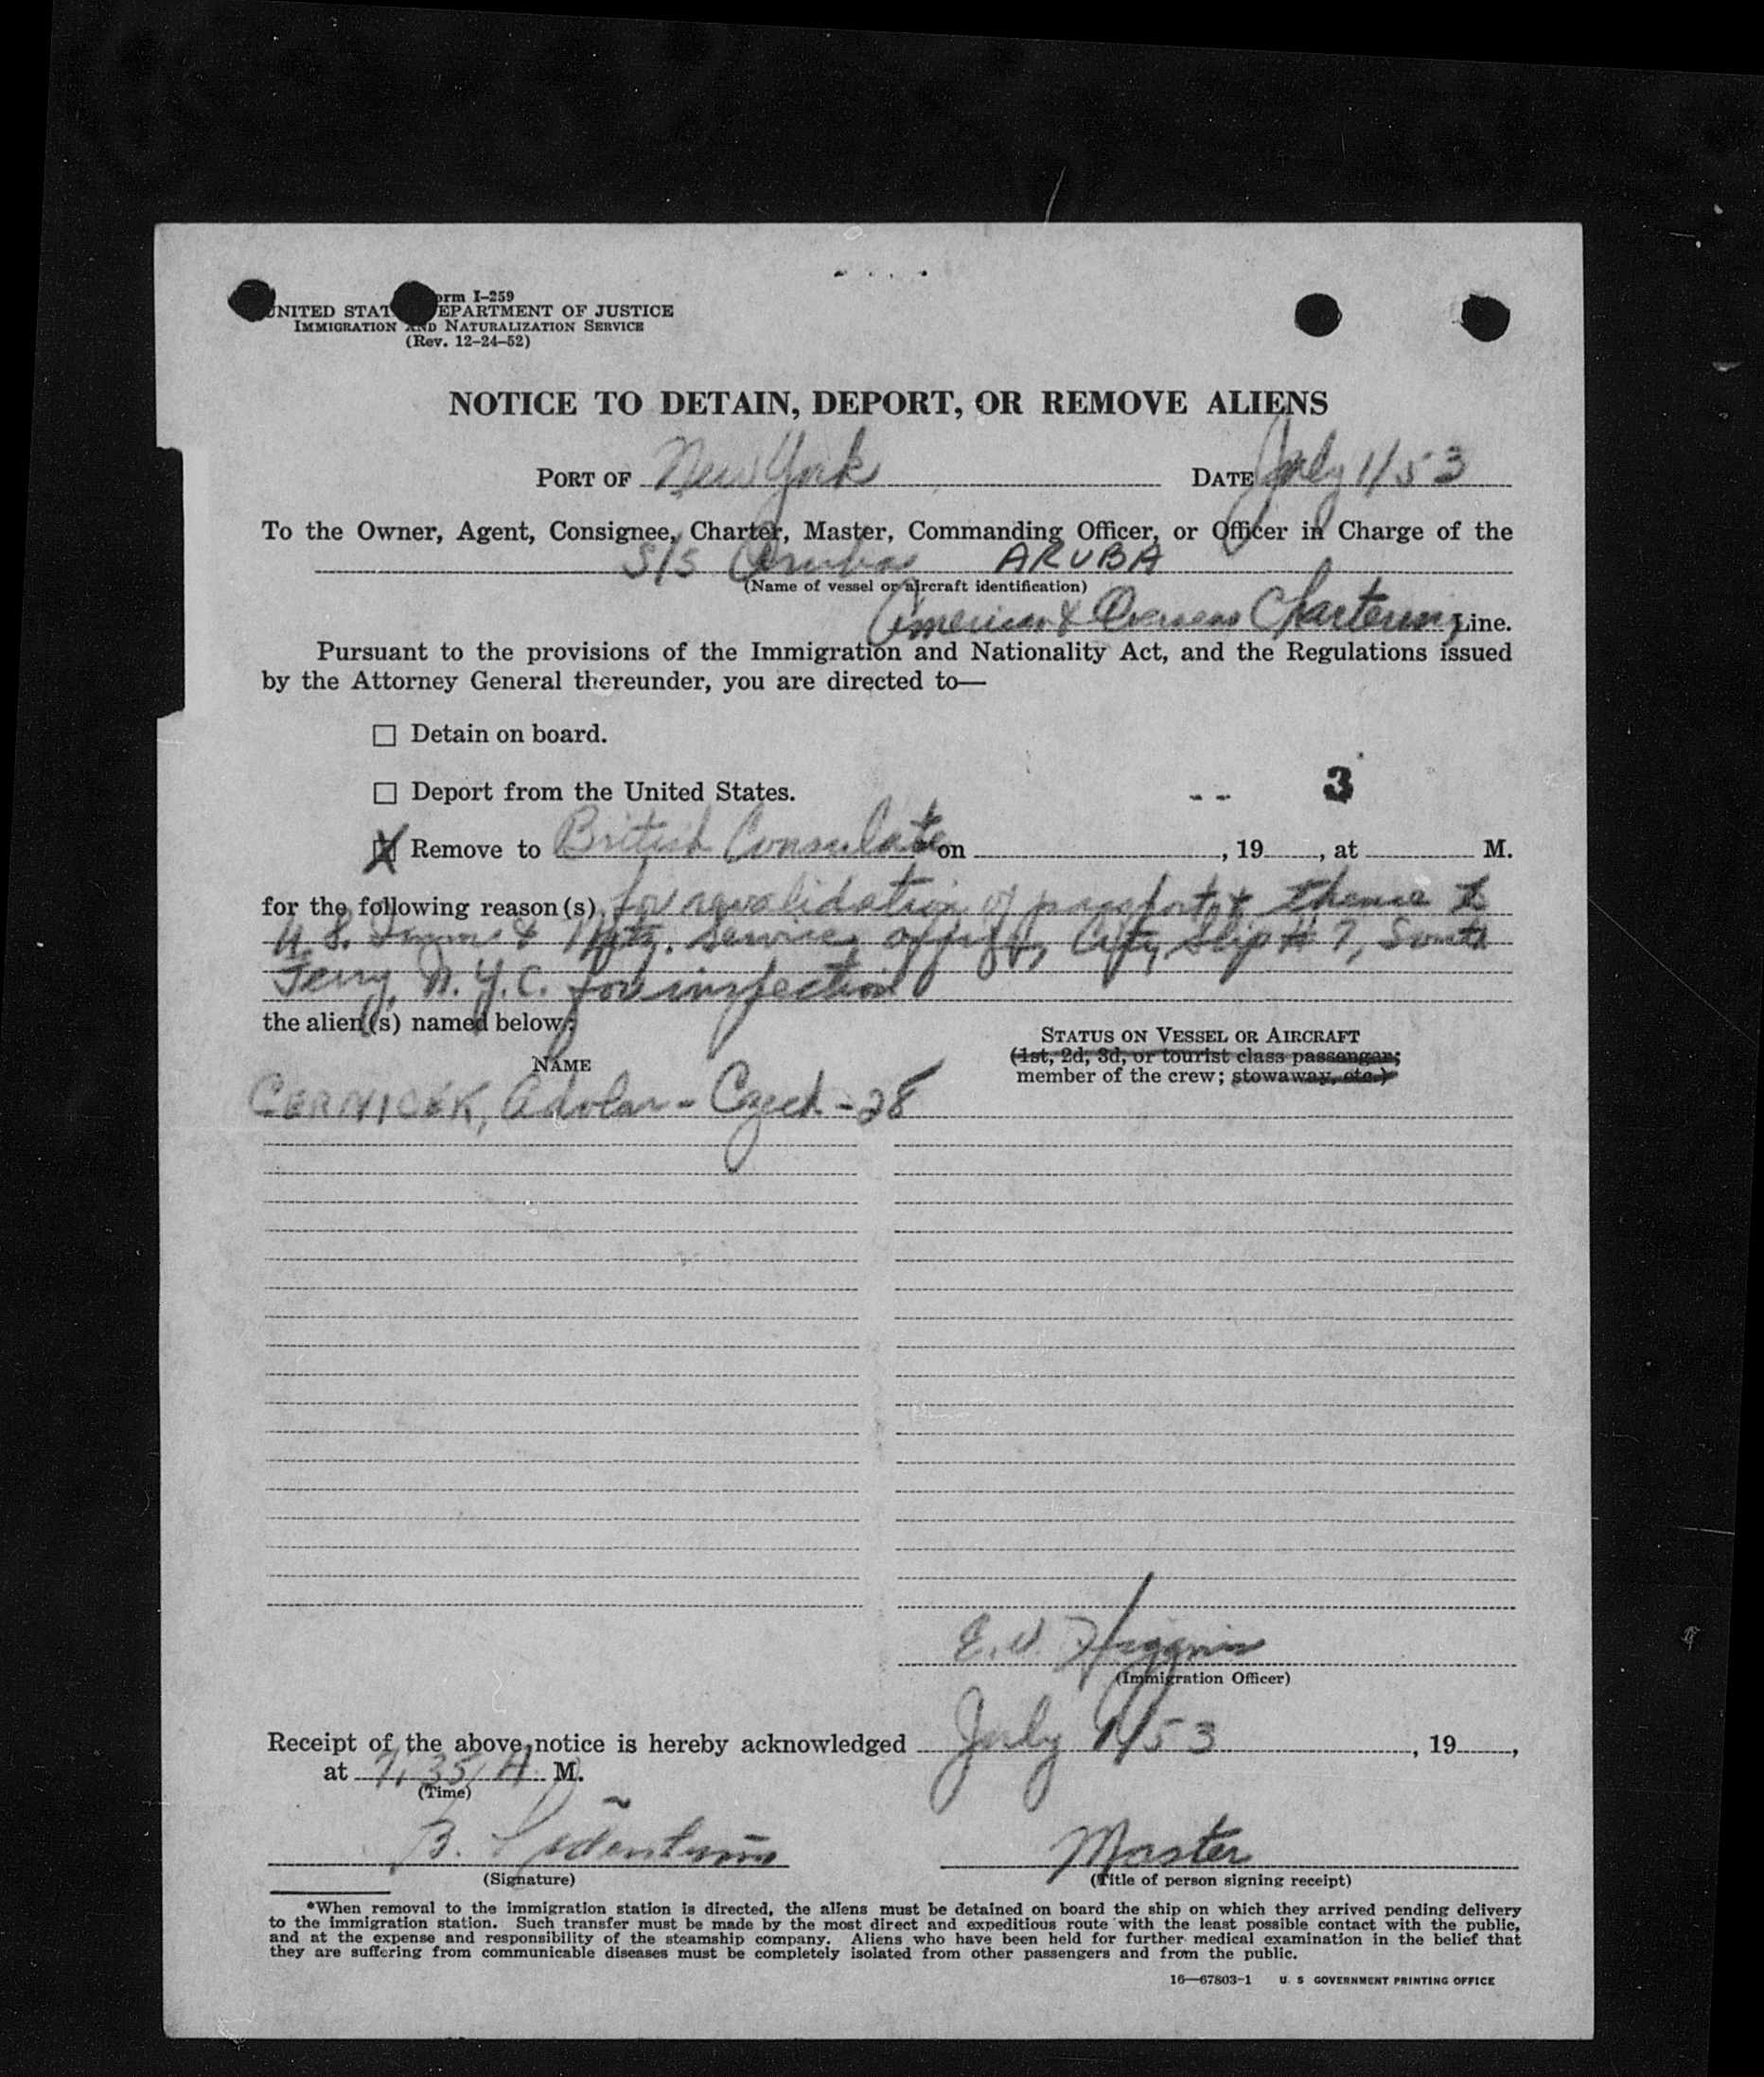 Form I-259
UNITED STATES DEPARTMENT OF JUSTICE
IMMIGRATION AND NATURALIZATION SERVICE
(Rev. 12-24-52)
NOTICE TO DETAIN, DEPORT, OR REMOVE ALIENS
PORT OF New York DATE July 1/53
To the Owner, Agent, Consignee, Charter, Master, Commanding Officer, or Officer in Charge of the
S/S Aruba ARUBA
(Name of vessel or aircraft identification)
American & Overseas Chartering Line.
Pursuant to the provisions of the Immigration and Nationality Act, and the Regulations issued
by the Attorney General thereunder, you are directed to—
☐ Detain on board.
☐ Deport from the United States.
3
☒ Remove to British Consulate on , 19 , at M.
for the following reason(s) for revalidation of passport & thence to
U.S. Imm & Natz. Service, office, City Slip # 7, South
Ferry, N.Y.C. for inspection
the alien(s) named below:
NAME
STATUS ON VESSEL OR AIRCRAFT
(1st, 2d, 3d, or tourist class passenger;
member of the crew; stowaway, etc.)
CERNICEK, Adolar - Czech - 28
E. V. Higgins
(Immigration Officer)
Receipt of the above notice is hereby acknowledged July 1/53 , 19 ,
at 7:35 A M.
(Time)
B. Master
(Signature) (Title of person signing receipt)
*When removal to the immigration station is directed, the aliens must be detained on board the ship on which they arrived pending delivery
to the immigration station. Such transfer must be made by the most direct and expeditious route with the least possible contact with the public,
and at the expense and responsibility of the steamship company. Aliens who have been held for further medical examination in the belief that
they are suffering from communicable diseases must be completely isolated from other passengers and from the public.
16—67803-1 U. S GOVERNMENT PRINTING OFFICE